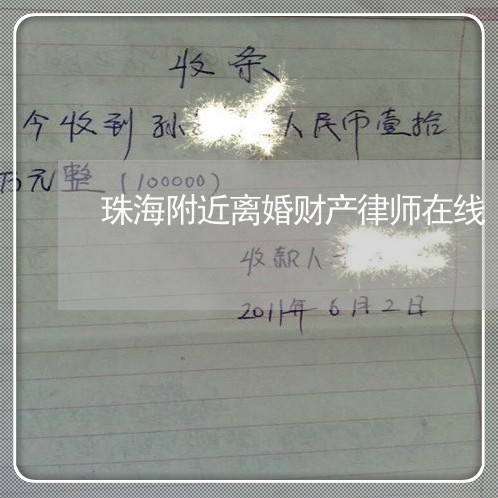 收条
今收到孙 人民币壹拾
万元整(100000)
珠海附近离婚财产律师在线
收款人
2011年6月2日